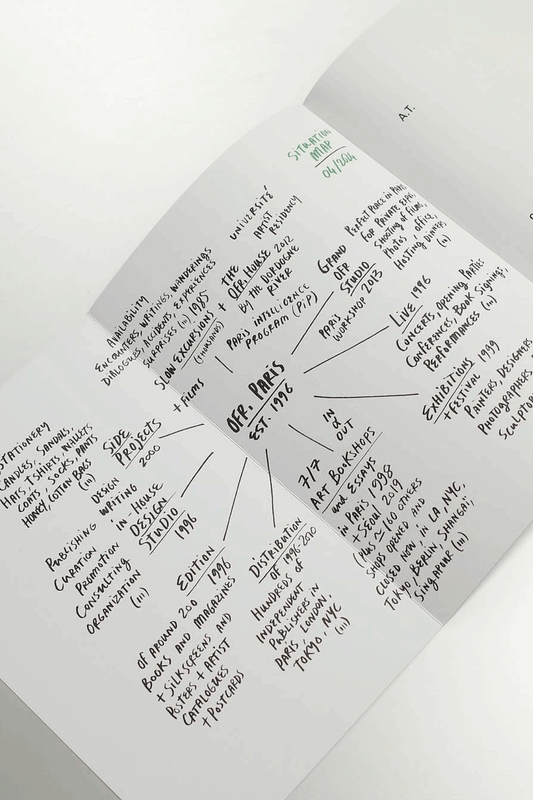 A.T.
SITUATION
MAP
04/2024
UNIVERSITÉ/
ARTIST
RESIDENCY
AVAILABILITY
ENCOUNTERS, WRITINGS, WANDERINGS
DIALOGUES, ACCIDENTS, EXPERIENCES
SURPRISES (11) 1985
SLOW EXCURSIONS
(THOUSANDS)
+ FILMS
+ THE
OFR. HOUSE 2012
BY THE DORDOGNE
RIVER
PARIS INTELLIGENCE
PROGRAM (P;P)
GRAND
OFR
STUDIO
PARIS
WORKSHOP 2013
PERFECT PLACE IN PARIS
FOR PRIVATE
SHOOTING OF FILMS,
PHOTOS, OFFICE,
HOSTING DINNERS,
(11)
LIVE 1996
CONCERTS, OPENING PARTIES
CONFERENCES, BOOK SIGNINGS,
PERFORMANCES (11)
EXHIBITIONS 1999
+ FESTIVAL
PAINTERS, DESIGNERS
PHOTOGRAPHERS,
SCULPTORS
OFR. PARIS
EST. 1996
IN
&
OUT
7/7
ART BOOKSHOPS
AND ESSAYS
IN PARIS 1998
+ SEOUL 2019
(PLUS ~ 160 OTHERS
SHOPS OPENED AND
CLOSED NOW: LA, NYC,
TOKYO, BERLIN, SHANGAI,
SINGAPORE (11)
DISTRIBUTION
OF 1996-2010
HUNDREDS OF
INDEPENDENT
PUBLISHERS IN
PARIS, LONDON,
TOKYO, NYC
(11)
EDITION
1996
OF AROUND 200
BOOKS AND MAGAZINES
+ SILKSCREENS AND
POSTERS + ARTIST
CATALOGUES
+ POSTCARDS
IN HOUSE
DESIGN
STUDIO
1996
DESIGN
WRITING
PUBLISHING
CURATION
PROMOTION
CONSULTING
ORGANIZATION
(11)
SIDE
PROJECTS
2000
STATIONERY
CANDLES, SANDALS,
HATS, TSHIRTS, WALLETS
COATS, SOCKS, PANTS
HONEY, COTTON BAGS
(11)